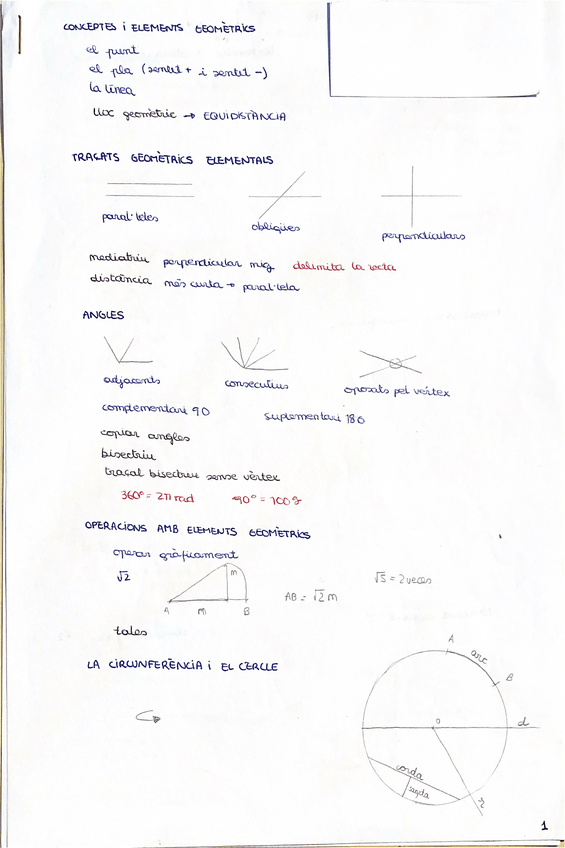 CONCEPTES i ELEMENTS GEOMÈTRICS
el punt
el pla (sentit + i sentit -)
la línea
lloc geomètric → EQUIDISTÀNCIA
TRAÇATS GEOMÈTRICS ELEMENTALS
paral·leles
obliqües
perpendiculars
mediatriu perpendicular mig delimita la recta
distància més curta → paral·lela
ANGLES
adjacents
consecutius
oposats pel vèrtex
complementari 90
suplementari 180
copiar angles
bisectriu
traçat bisectriu sense vèrtex
360º = 2π rad 90º = 100g
OPERACIONS AMB ELEMENTS GEOMÈTRICS
operar gràficament
√2
m
A M B
AB = √2 m
√5 = 2 veces
tales
LA CIRCUNFERÈNCIA i EL CERCLE
A
arc
B
O
d
corda
sagita
r
1